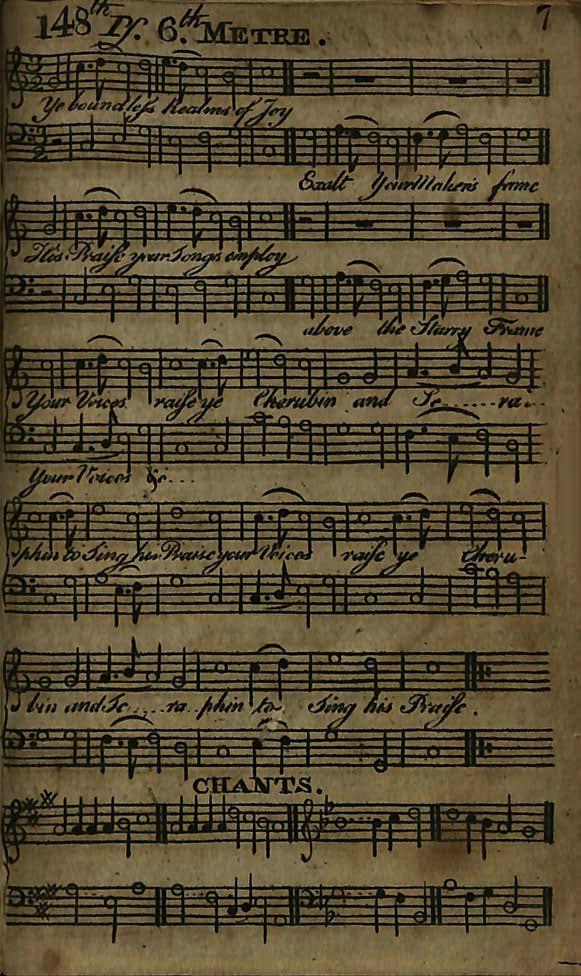 148th Ps. 6th METRE. 7
Ye boundless Realms of Joy
Exalt Your Maker's fame
His Praise your Songs employ
above the Starry Frame
Your Voices raise ye Cherubin and Se......ra..
Your Voices &c...
phin to Sing his Praise your Voices raise ye Cheru-
bin and Se....ra phin to Sing his Praise.
CHANTS.